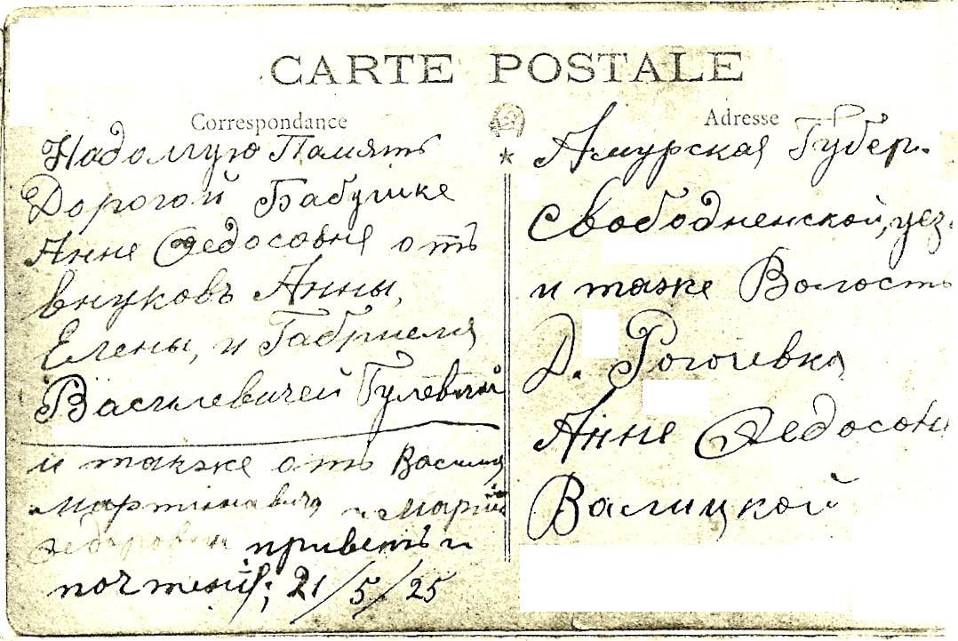 CARTE POSTALE
Correspondance
Надолгую Память
Дорогой Бабушке
Анне Федосовне отъ
внуковъ Анны,
Елены, и Габриеля
Василевичей Гулевичей
и также отъ Василия
Мартиновича и Марии
Федоровны приветъ и
почтение; 21/5/25
Adresse
Амурская Губер.
Свободненской, уез.
и тоже Волость
Д. Рогочевка
Анне Федосовн
Валицкой